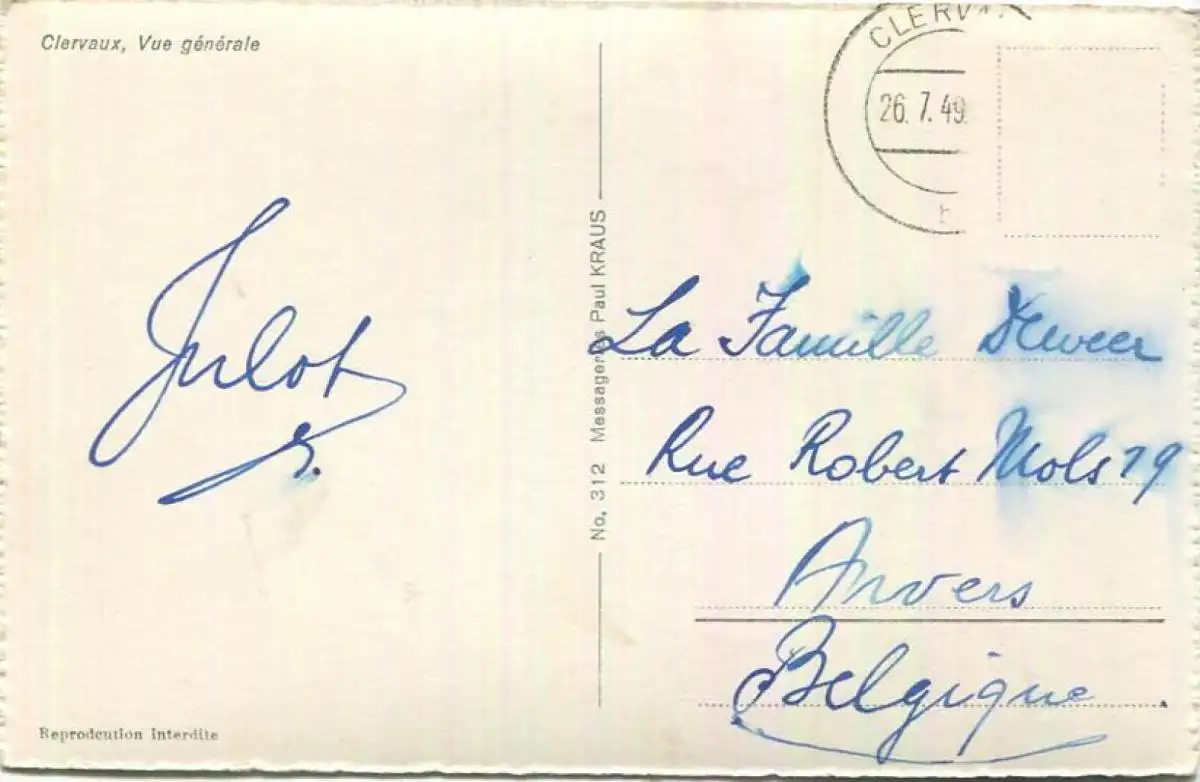 Clervaux, Vue générale
CLERV
26. 7. 49
Julot
No. 312 Messageries Paul KRAUS
La Famille
Rue Robert Mols 19
Anvers
Belgique.
Reprodcution Interdite